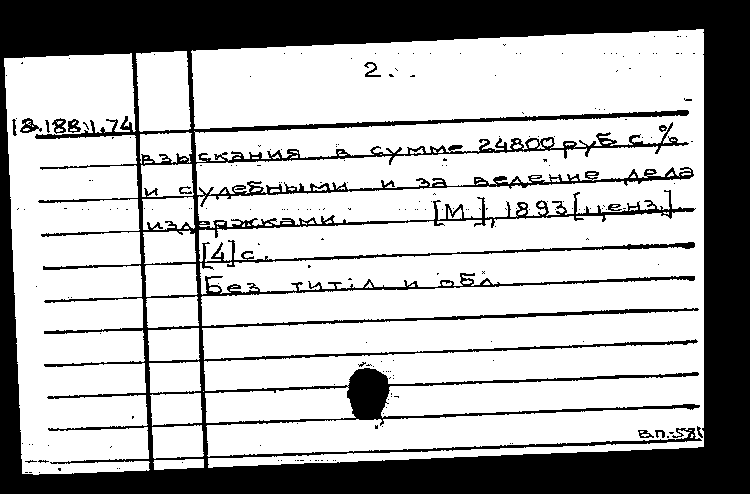 2.
18.188.1.74
взыскания в сумме 24800 руб с %
и судебными и за ведение дела
издержками. [М.], 1893 [ценз.]
[4] с.
Без тит. л. и обл.
В.П.-581